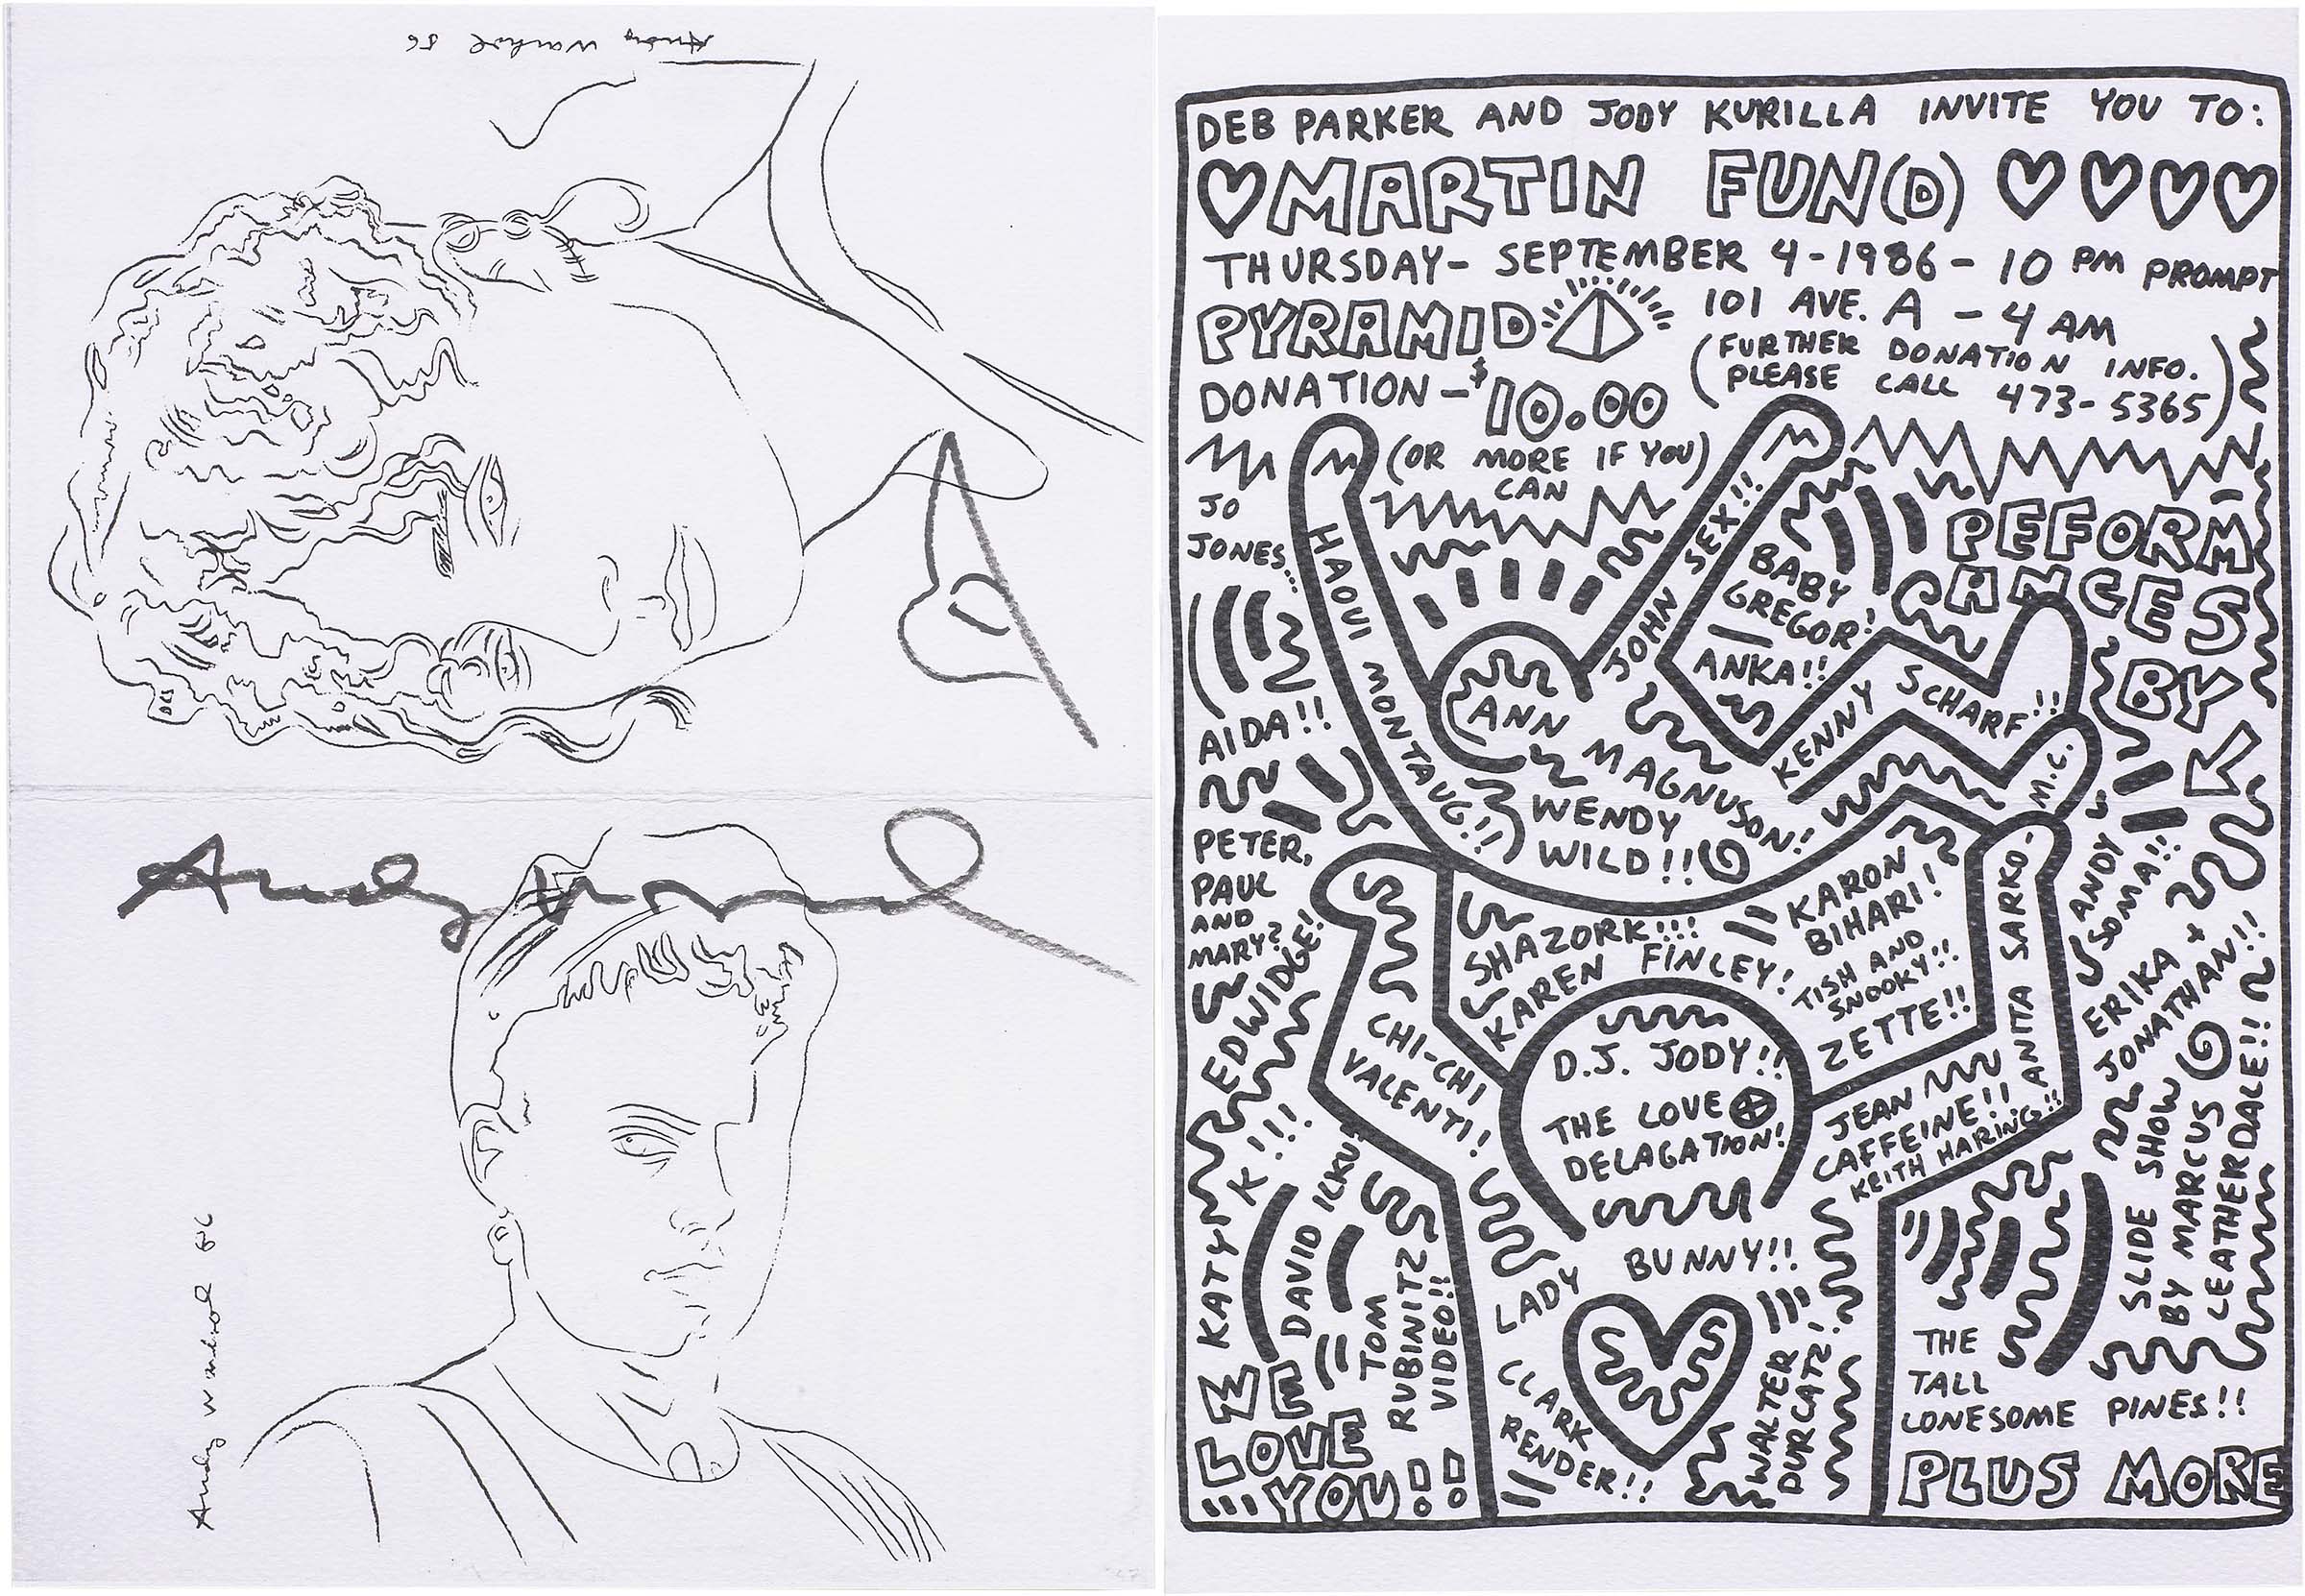 Andy Warhol 86
Andy Warhol
Andy Warhol 86
DEB PARKER AND JODY KURILLA INVITE YOU TO:
MARTIN FUN(D)
THURSDAY- SEPTEMBER 4-1986- 10 PM PROMPT
PYRAMID 101 AVE. A - 4 AM
(FURTHER DONATION INFO.
PLEASE CALL 473-5365)
DONATION-$10.00
(OR MORE IF YOU)
CAN
JO
JONES...
HAOUI MONTAUG!!
JOHN SEX!!
BABY
GREGOR!
ANKA!!
PEFORM-
ANCES
BY
KENNY SCHARF!!
ANN MAGNUSON!
WENDY
WILD!!
AIDA!!
PETER,
PAUL
AND
MARY?
EDWIDGE!
M.C.
ANDY
SOMA!!
SHAZORK!!!
KAREN FINLEY!
KARON
BIHARI!
TISH AND
SNOOKY!!
ZETTE!!
ANITA SARKO-
ERIKA +
JONATHAN!!
CHI-CHI
VALENTI!
D.J. JODY!!
THE LOVE
DELAGATION!
JEAN
CAFFEINE!!
KEITH HARING!!
KATY K!!!
DAVID ILKU!
TOM
RUBINITZ
VIDEO!!
LADY BUNNY!!
CLARK
RENDER!!
WALTER
DURCATZ!
SLIDE SHOW
BY MARCUS
LEATHERDALE!!
THE
TALL
LONESOME PINES!!
WE
LOVE
YOU!!
PLUS MORE